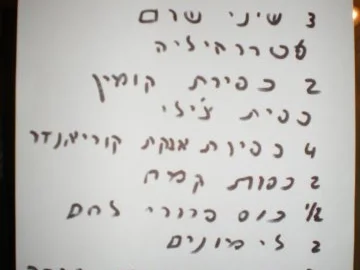 3 שיני שום
פטרוזיליה
2 כפיות קומין
כפית צ'ילי
4 כפיות אבקת קוריאנדר
2 כפות קמח
1/2 כוס פירורי לחם
2 לימונים